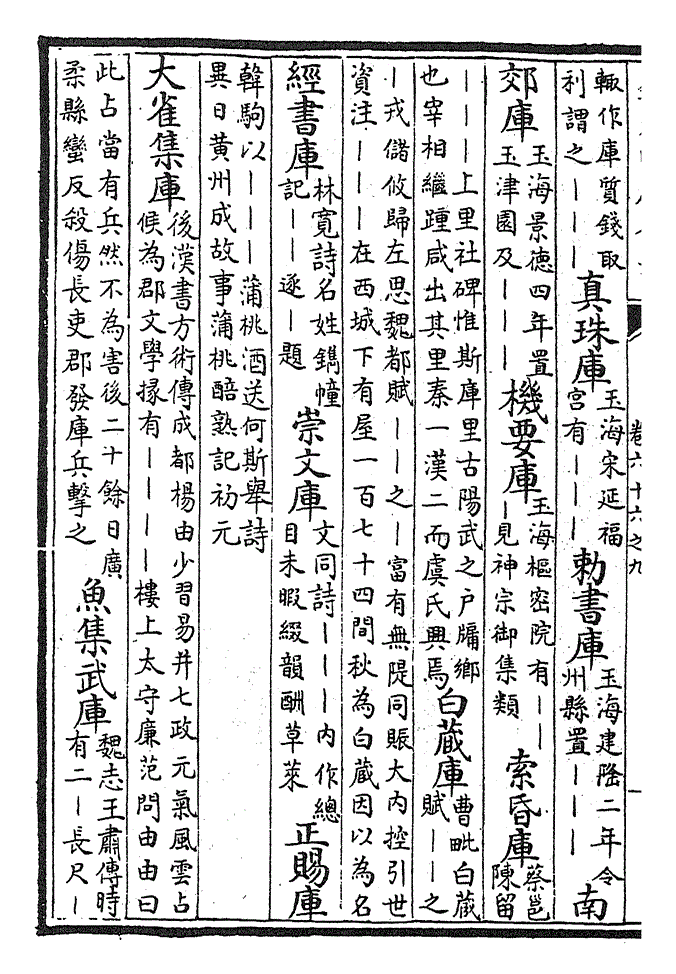 卷六十六之九
輙作庫質錢取
利謂之｜｜｜
真珠庫
玉海宋延福
宮有｜｜｜
勅書庫
玉海建隆二年令
州縣置｜｜｜
南
郊庫
玉海景徳四年置
玉津園及｜｜｜
機要庫
玉海樞密院有｜｜
｜見神宗御集類
索昏庫
蔡邕
陳留
｜｜｜上里社碑惟斯庫里古陽武之户牖鄉
也宰相繼踵咸出其里秦一漢二而虞氏興焉
白藏庫
曹毗白藏
賦｜｜之
｜戎儲攸歸左思魏都賦｜｜之｜富有無隄同賑大内控引世
資注｜｜｜在西城下有屋一百七十四間秋為白藏因以為名
經書庫
林寛詩名姓鐫幢
記｜｜逐｜題
崇文庫
文同詩｜｜｜内作總
目未暇綴韻酬草萊
正賜庫
韓駒以｜｜｜蒲桃酒送何斯舉詩
異日黄州成故事蒲桃醅熟記初元
大雀集庫
後漢書方術傳成都楊由少習易并七政元氣風雲占
候為郡文學掾有｜｜｜｜樓上太守廉范問由由曰
此占當有兵然不為害後二十餘日廣
柔縣蠻反殺傷長吏郡發庫兵擊之
魚集武庫
魏志王肅傳時
有二｜長尺｜